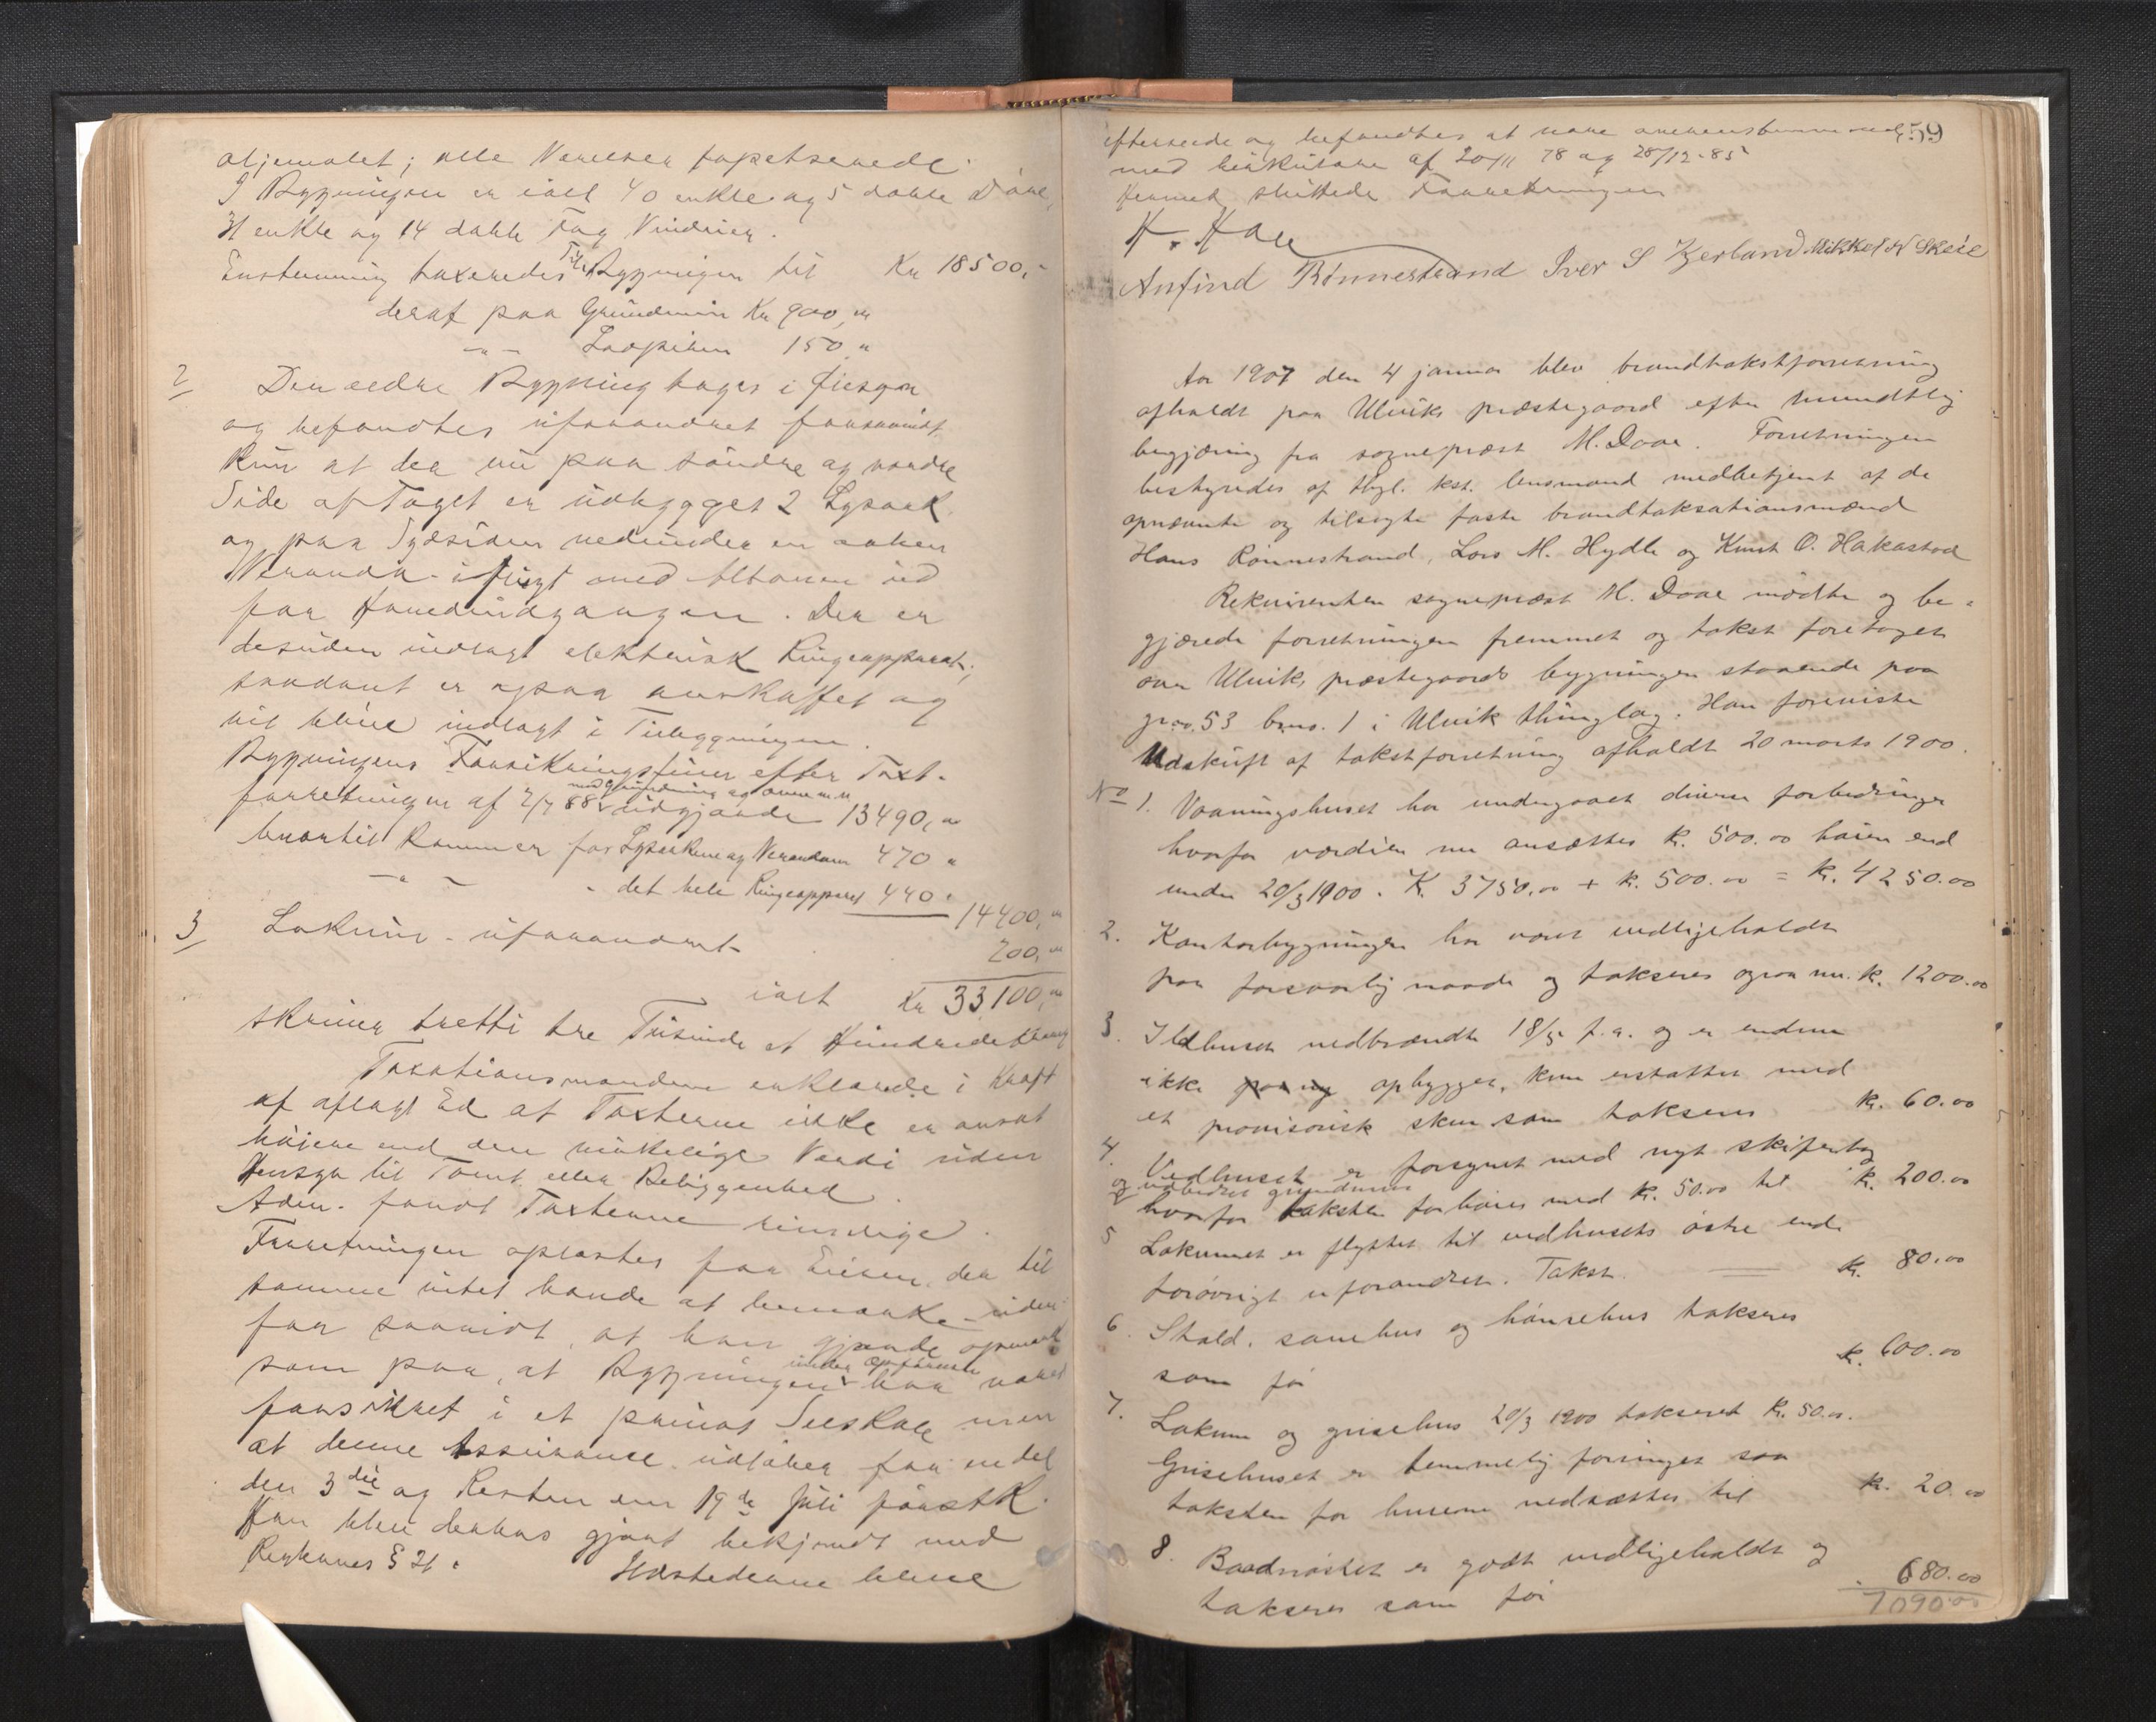 oljemalet; alle Værelser tapetserede.
I Bygningen er ialt 40 enkle og 5 doble Døre,
31 enkle og 14 doble Fag Vinduer.
Enstemmig taxeredes Tilbygningen til Kr 18500,-
deraf paa Grundmur Kr 900,"
-"- Loopiber 150 "
2/ Den ældre Bygning toges i Øiesyn
og befandtes uforandret forsaavidt
kun at der nu paa søndre og nordre
Side af Taget er udbygget 2 Lysark
og paa Sydsiden nedunder en aaben
Veranda i flugt med Altanen ud
for Hovedindgangen. Der er
desuden indlagt elektrisk Ringeapparat;
saadant er ogsaa anskaffet og
vil blive indlagt i Tilbygningen.
Bygningens Forsikringssum efter Taxt-
forretningen af 2/7 88 med grundmur og ovne m. m. udgjorde 13490,"
hvortil kommer for Lysarkene og Verandaen 470 "
-"- - det hele Ringeapparat 440 "
14400,"
3/ Lokum - uforandret 200,"
ialt Kr 33,100,"
skriver tretti tre Tusinde et Hundrede Kroner
Taxationsmændene erklærede i Kraft
af aflagt Ed at Taxterne ikke er ansat
høiere end den virkelige Værdi uden
Hensyn til Tomt eller Beliggenhed.
Adm. fandt Taxterne rimelige.
Forretningen oplæstes for Eieren, der til
samme intet havde at bemærke uden
for saavidt, at han gjorde opmærk
som paa, at Bygningen under opførelse har været
forsikret i et privat Selskab men
at denne Assurance udløber for en del
den 3die og Resten den 19de Juli førstk.
Han blev derhos gjort bekjendt med
Reglernes § 21. Ildstederne blev
59
efterseede og befandtes at være overensstemmende
med Cirkulære af 20/11 78 og 28/12-85
Hermed sluttede Forretningen
H. Haae
Anfind Rønnestrand Iver S Kjerland Mikkel N Skeie
Aar 1907 den 4 januar blev brandtakstforretning
afholdt paa Ulviks præstegaard efter mundtlig
begjæring fra sogneprest M. Daae. Forretningen
bestyredes af thgl. kst. lensmand medbetjent af de
opnævnte og tilsagte faste brandtaksationsmænd
Hans Rønnestrand, Lars M. Hydle og Knut O. Hakastad
Rekvirenten sogneprest M. Daae mødte og be-
gjærede forretningen fremmet og takst foretaget
over Ulviks præstegaards bygninger staaende paa
gr.no. 53 br.no. 1 i Ulvik thinglag. Han foreviste
Udskrift af takstforretning afholdt 20 marts 1900.
No 1. Vaaningshuset har undergaaet diverse forbedringer
hvorfor værdien nu ansættes kr. 500.00 høiere end
under 20/3 1900. Kr. 3750.00 + kr. 500.00 = kr. 4250.00
2. Kontorbygningen har været vedligeholdt
paa forsvarlig maade og takseres ogsaa nu. kr. 1200.00
3. Ildhuset nedbrændte 18/5 f. a. og er endnu
ikke paa ny opbygget, kun erstattet med
et provisorisk skur som takseres kr. 60.00
4. Vedhuset er forsynet med nyt skifertag
og udbedret grundmur
hvorfor taksten forhøies med kr. 50.00 til kr. 200.00
5 Lokummet er flyttet til vedhusets østre ende
forøvrigt uforandret. Takst. kr. 80.00
6. Stald, sauehus og hønsehus takseres
som før kr. 600.00
7. Lokum og grisehus 20/3 1900 takseret kr. 50.00.
Grisehuset er temmelig forringet saa
taksten for husene nedsættes til kr. 20.00
8. Baadnøstet er godt vedligeholdt og
takseres som før 680.00
7090.00